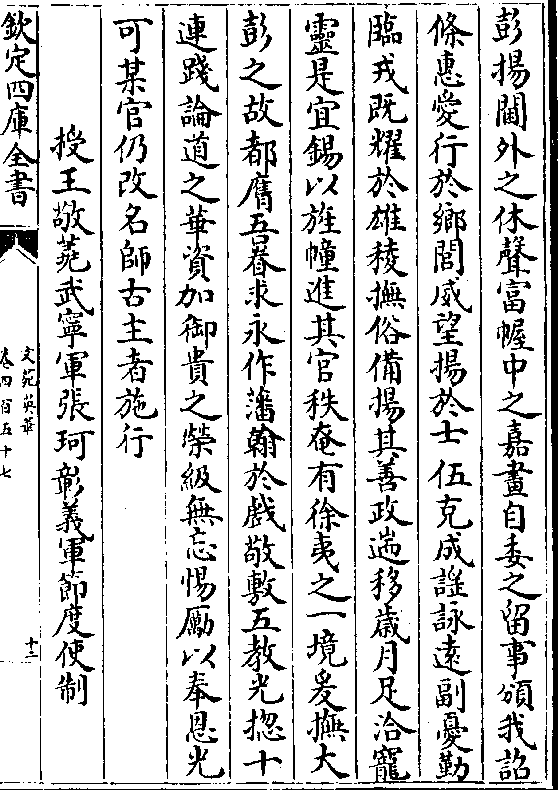 彭揚閫外之休聲富幄中之嘉畫自委之留事頒我詔
條惠愛行於鄉閭威望揚於士伍克成謡詠逺副憂勤
臨戎既耀於雄稜撫俗備揚其善政遄移歲月足洽寵
靈是宜錫以旌幢進其官秩奄有徐夷之一境爰撫大
彭之故都膺吾眷求永作藩翰於戲敬敷五教光揔十
連踐論道之華資加御貴之榮級無忘惕厲以奉恩光
可某官仍改名師古主者施行
授王敬蕘武寧軍張珂彰義軍節度使制
欽定四庫全書
文苑英華
卷四百五十七
十二